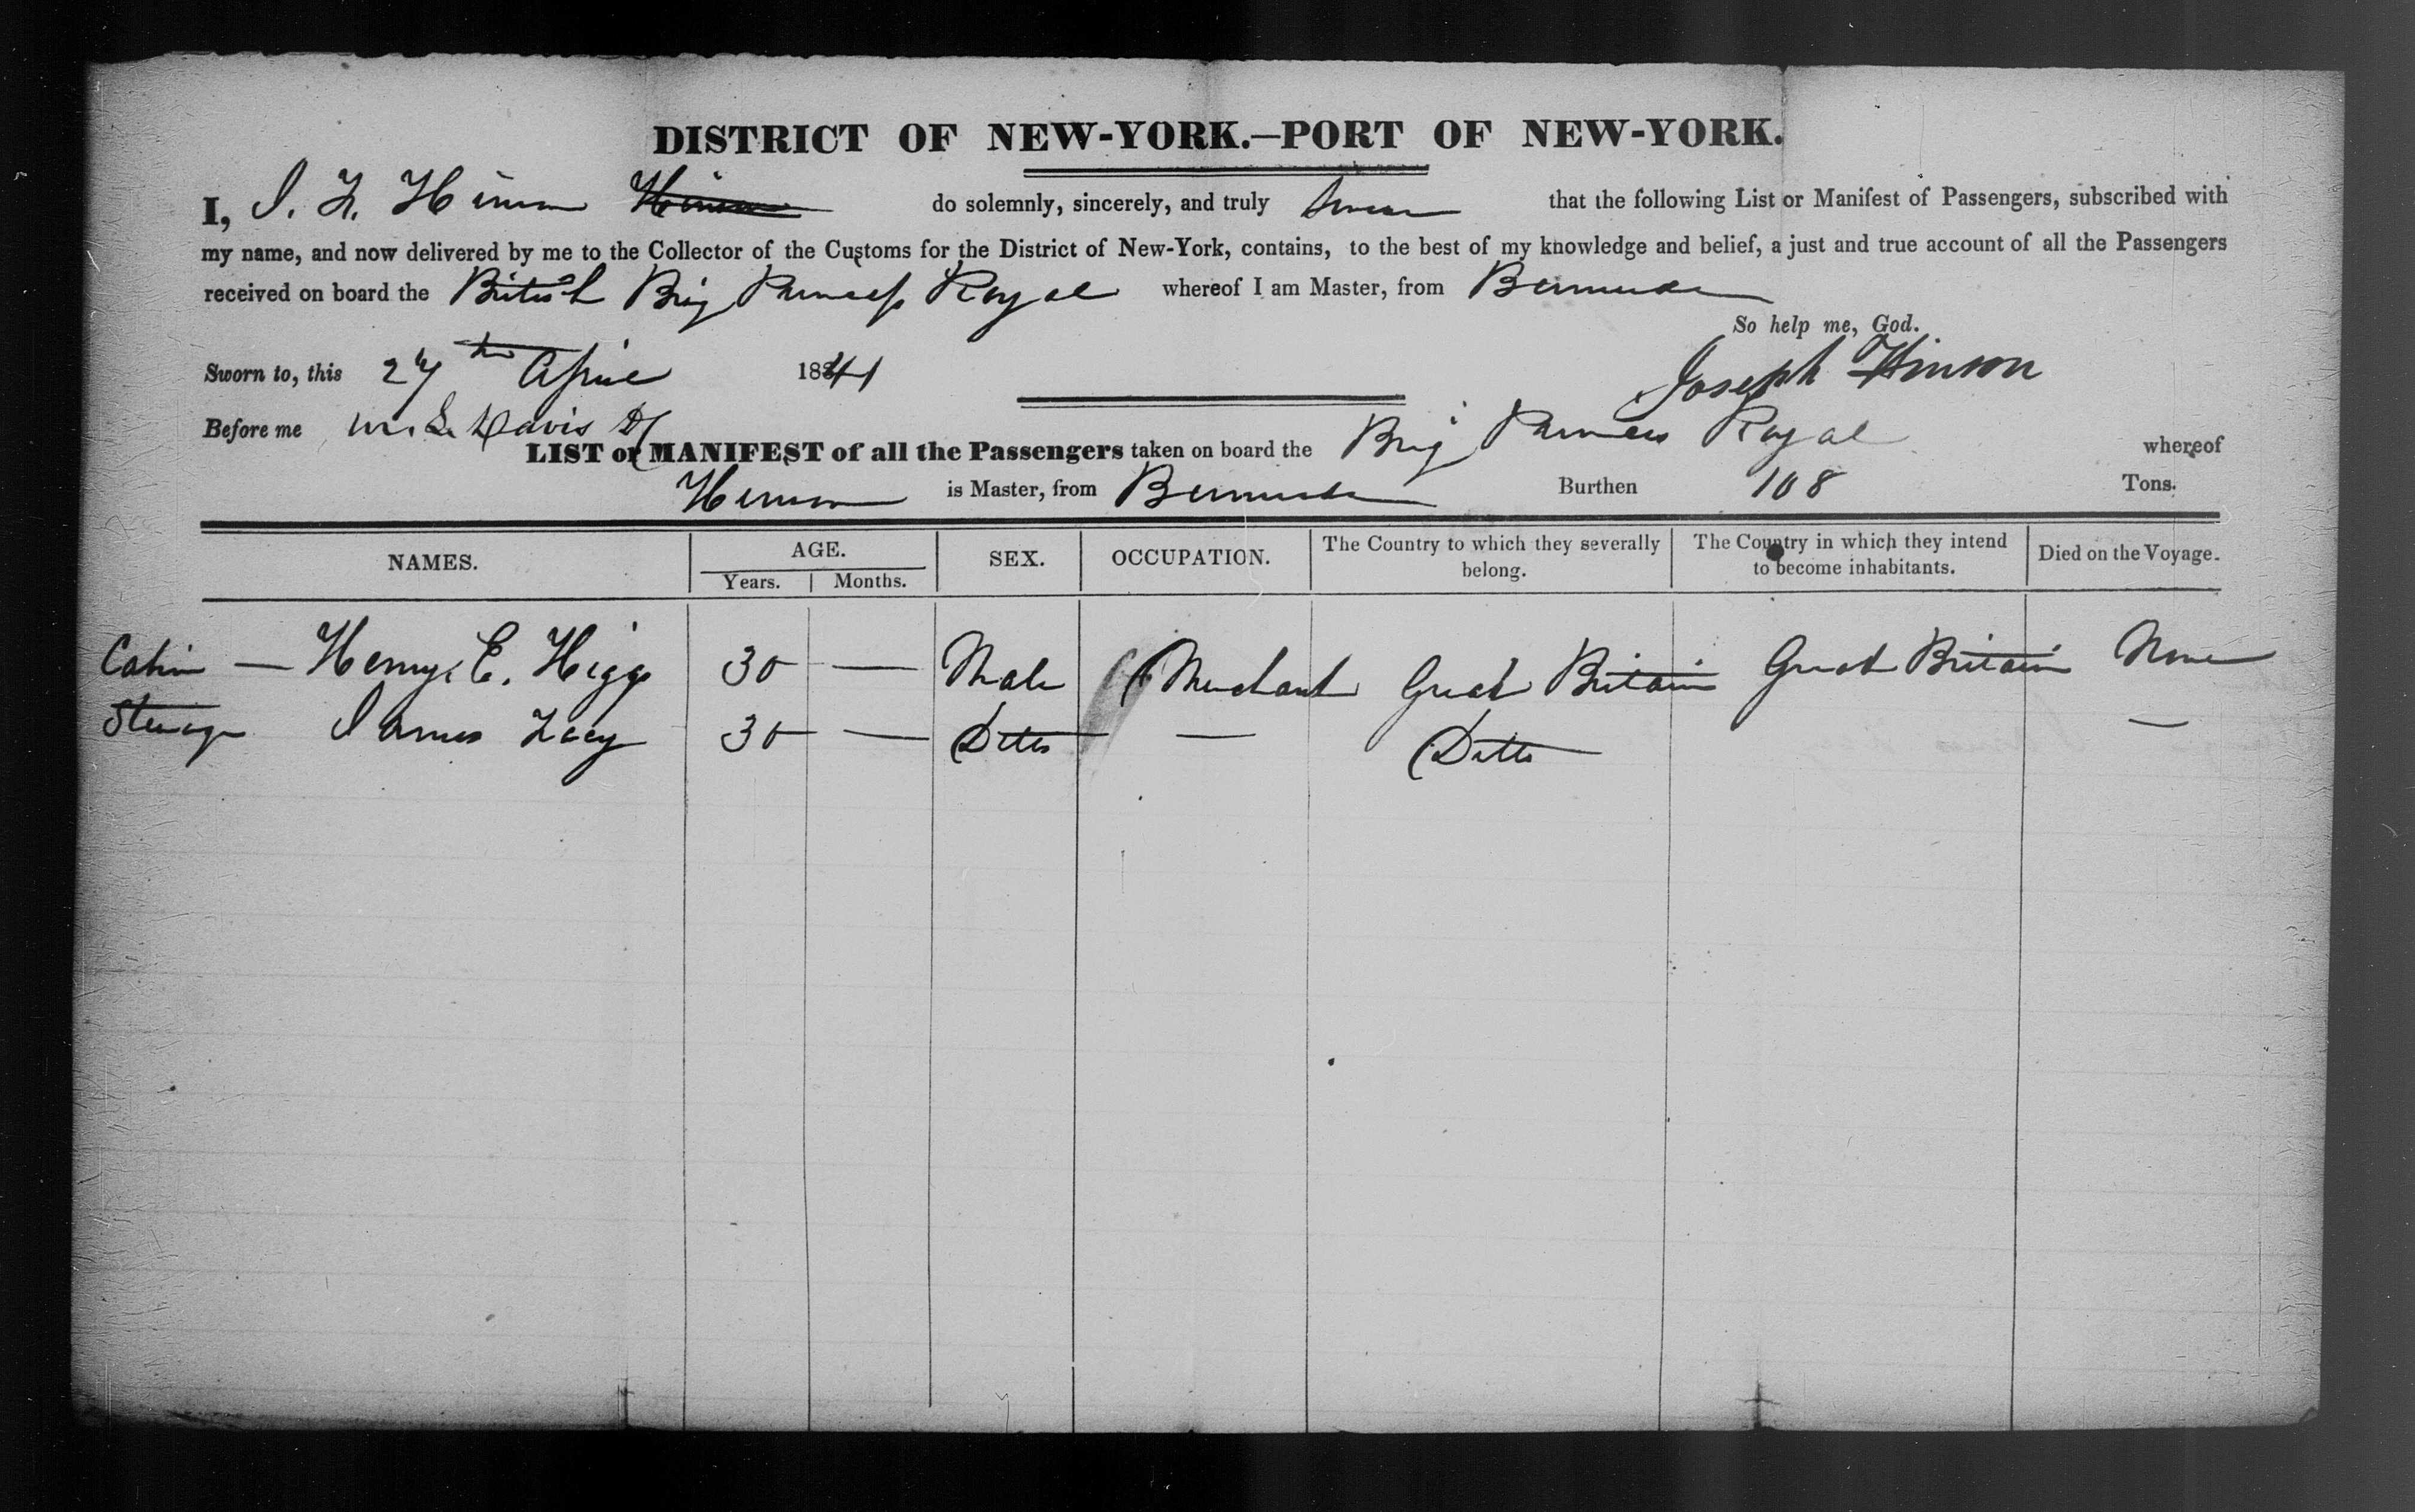 DISTRICT OF NEW-YORK.—PORT OF NEW-YORK.
I, J. L. Hinson Hinson do solemnly, sincerely, and truly Swear that the following List or Manifest of Passengers, subscribed with
my name, and now delivered by me to the Collector of the Customs for the District of New-York, contains, to the best of my knowledge and belief, a just and true account of all the Passengers
received on board the British Brig Princess Royal whereof I am Master, from Bermuda
So help me, God.
Sworn to, this 27th April 1841
Joseph Hinson
Before me Davis
LIST or MANIFEST of all the Passengers taken on board the Brig Princess Royal whereof
Hinson is Master, from Bermuda Burthen 108 Tons.
NAMES. AGE. SEX. OCCUPATION. The Country to which they severally belong. The Country in which they intend to become inhabitants. Died on the Voyage.
Years. Months.
Cabin — Henry E. Higgs 30 — Male Merchant Great Britain Great Britain None
Steerage James 30 — Ditto — Ditto —